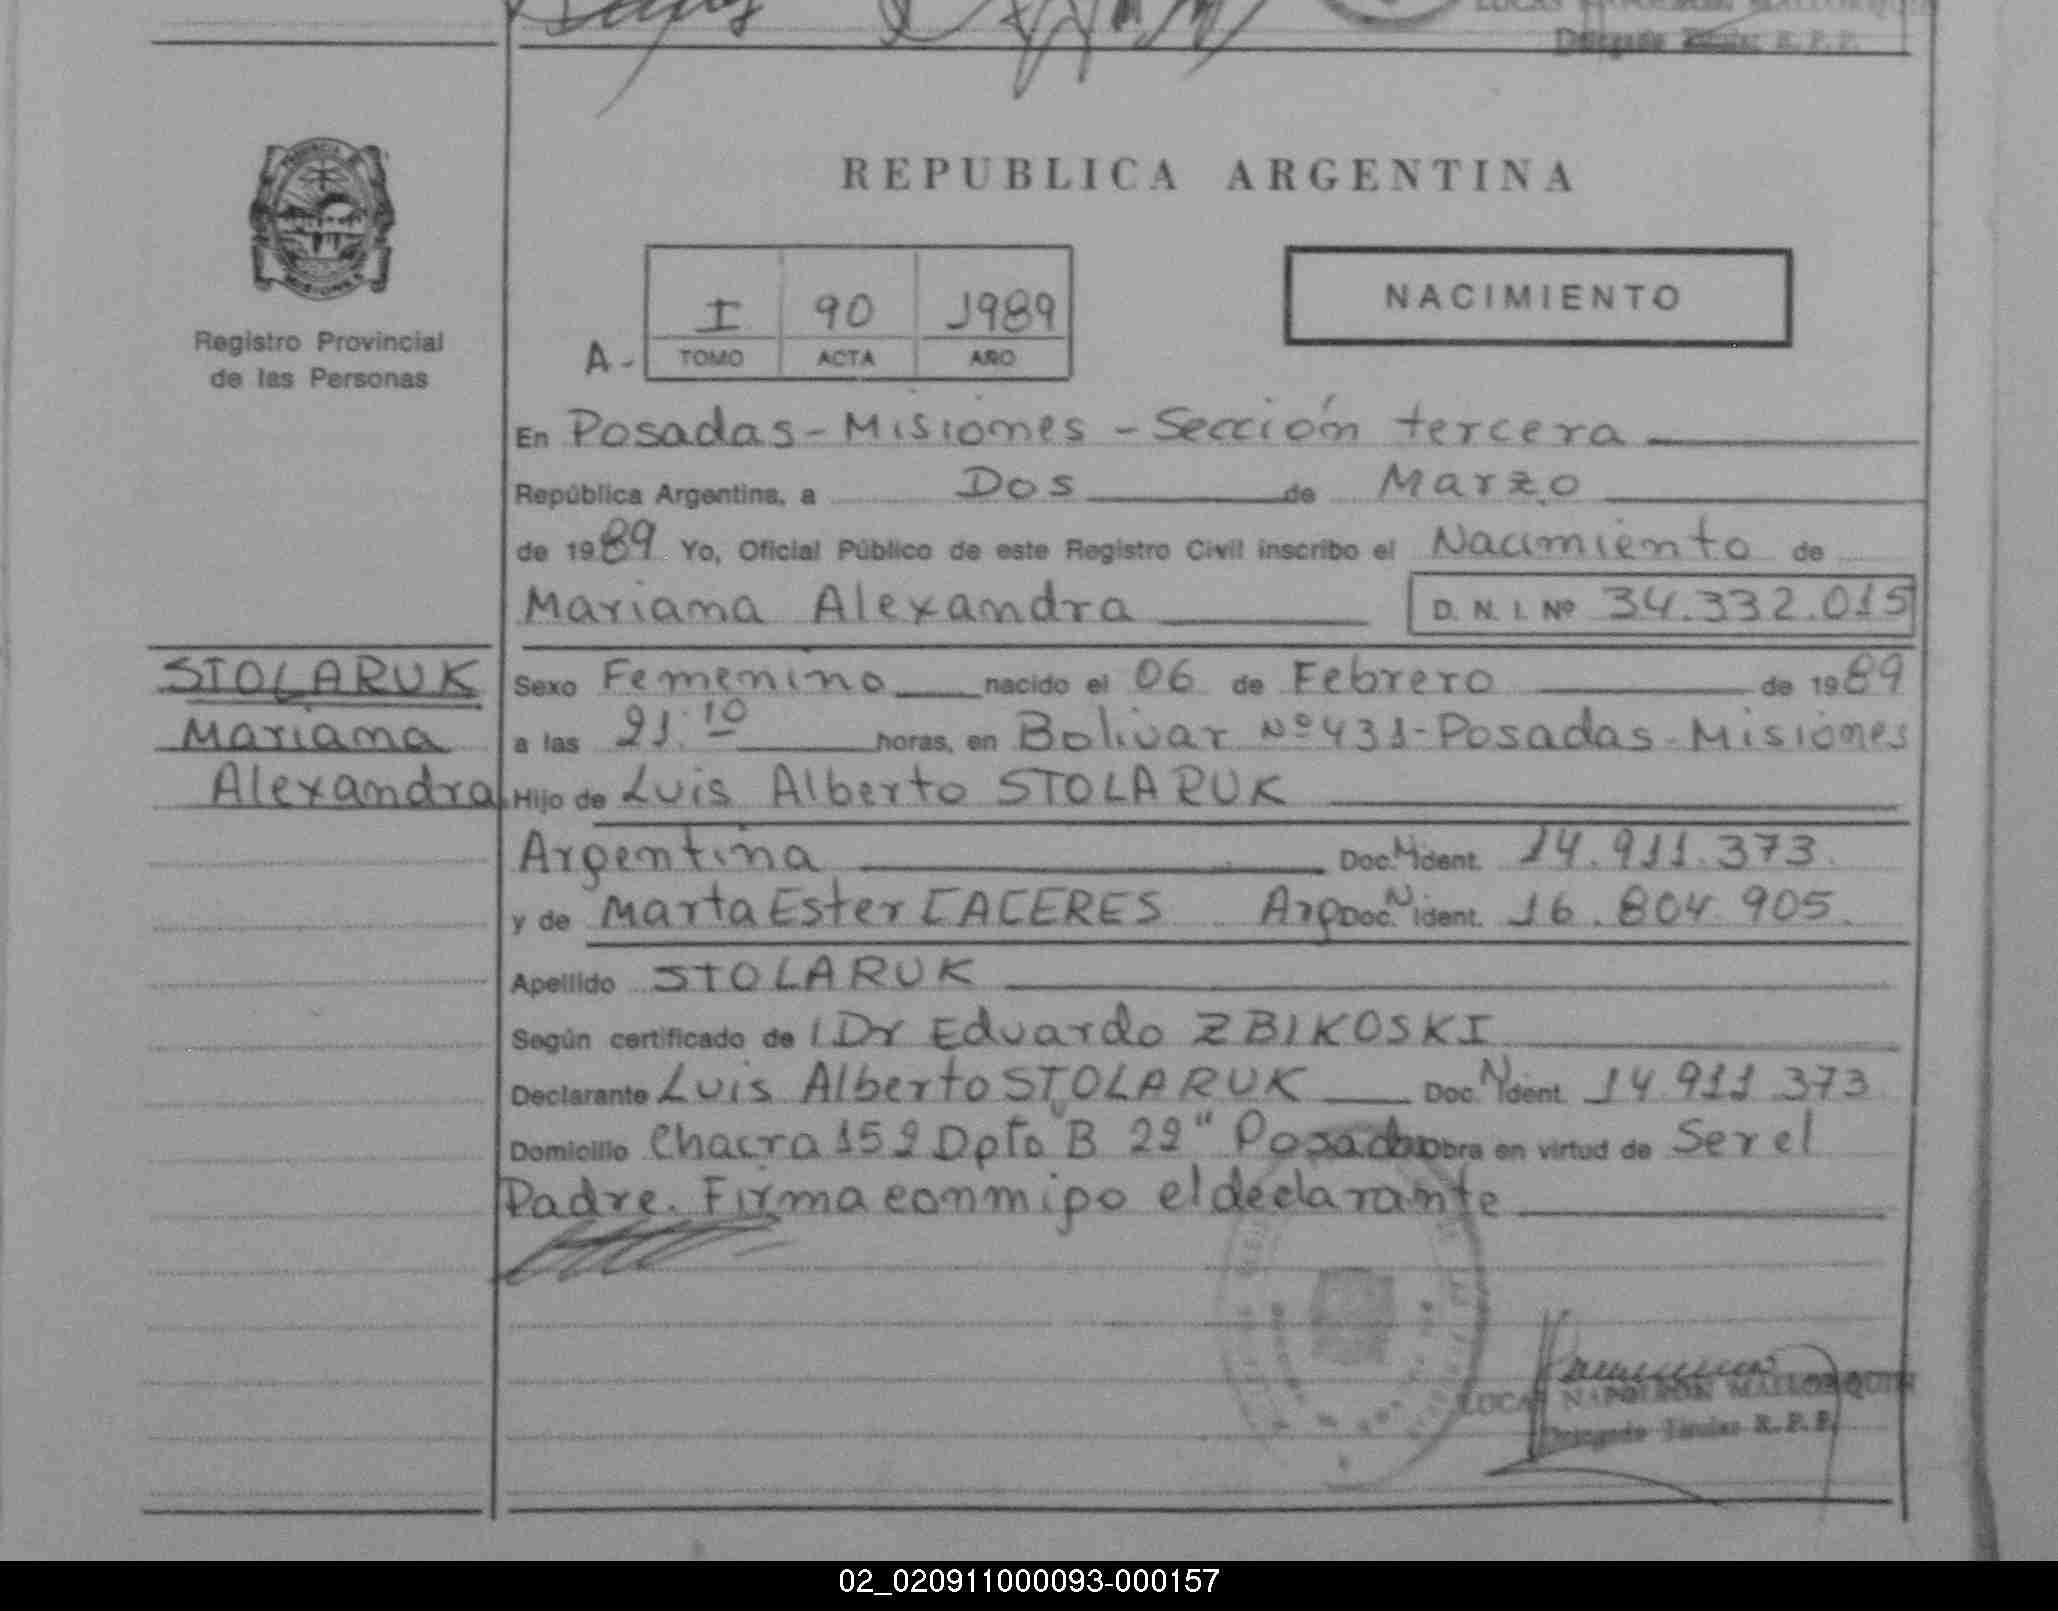 Delegado Titular R. P. P.
REPUBLICA ARGENTINA
NACIMIENTO
I 90 1989
A- TOMO ACTA AÑO
Registro Provincial
de las Personas
En Posadas - Misiones - Sección tercera
República Argentina, a Dos de Marzo
de 1989 Yo, Oficial Público de este Registro Civil inscribo el Nacimiento de
Mariana Alexandra D. N. I. Nº 34.332.015
STOLARUK
Mariana
Alexandra
Sexo Femenino nacido el 06 de Febrero de 1989
a las 21:10 horas, en Bolivar Nº 431 - Posadas - Misiones
Hijo de Luis Alberto STOLARUK
Argentina Doc. N ident. 14.911.373.
y de Marta Ester CACERES Arg Doc. N ident. 16.804.905.
Apellido STOLARUK
Según certificado de Dr Eduardo ZBIKOSKI
Declarante Luis Alberto STOLARUK Doc. N ident. 14.911.373
Domicilio Chacra 152 Dpto "B 22" Posadas obra en virtud de Ser el
Padre. Firma conmigo el declarante
LUCAS NAPOLEON MALLORQUIN
Delegado Titular R. P. P.
02_020911000093-000157